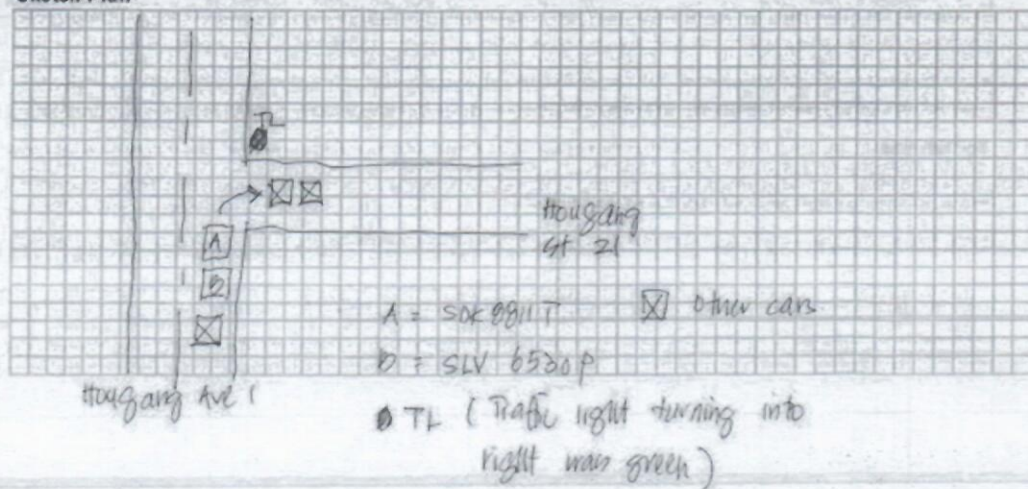 Sketch Plan
TL
Hougang
St 21
A
B
A = SDK 8811 T
Other cars
B = SLV 6530P
Hougang Ave 1
TL (Traffic light turning into
right was green)